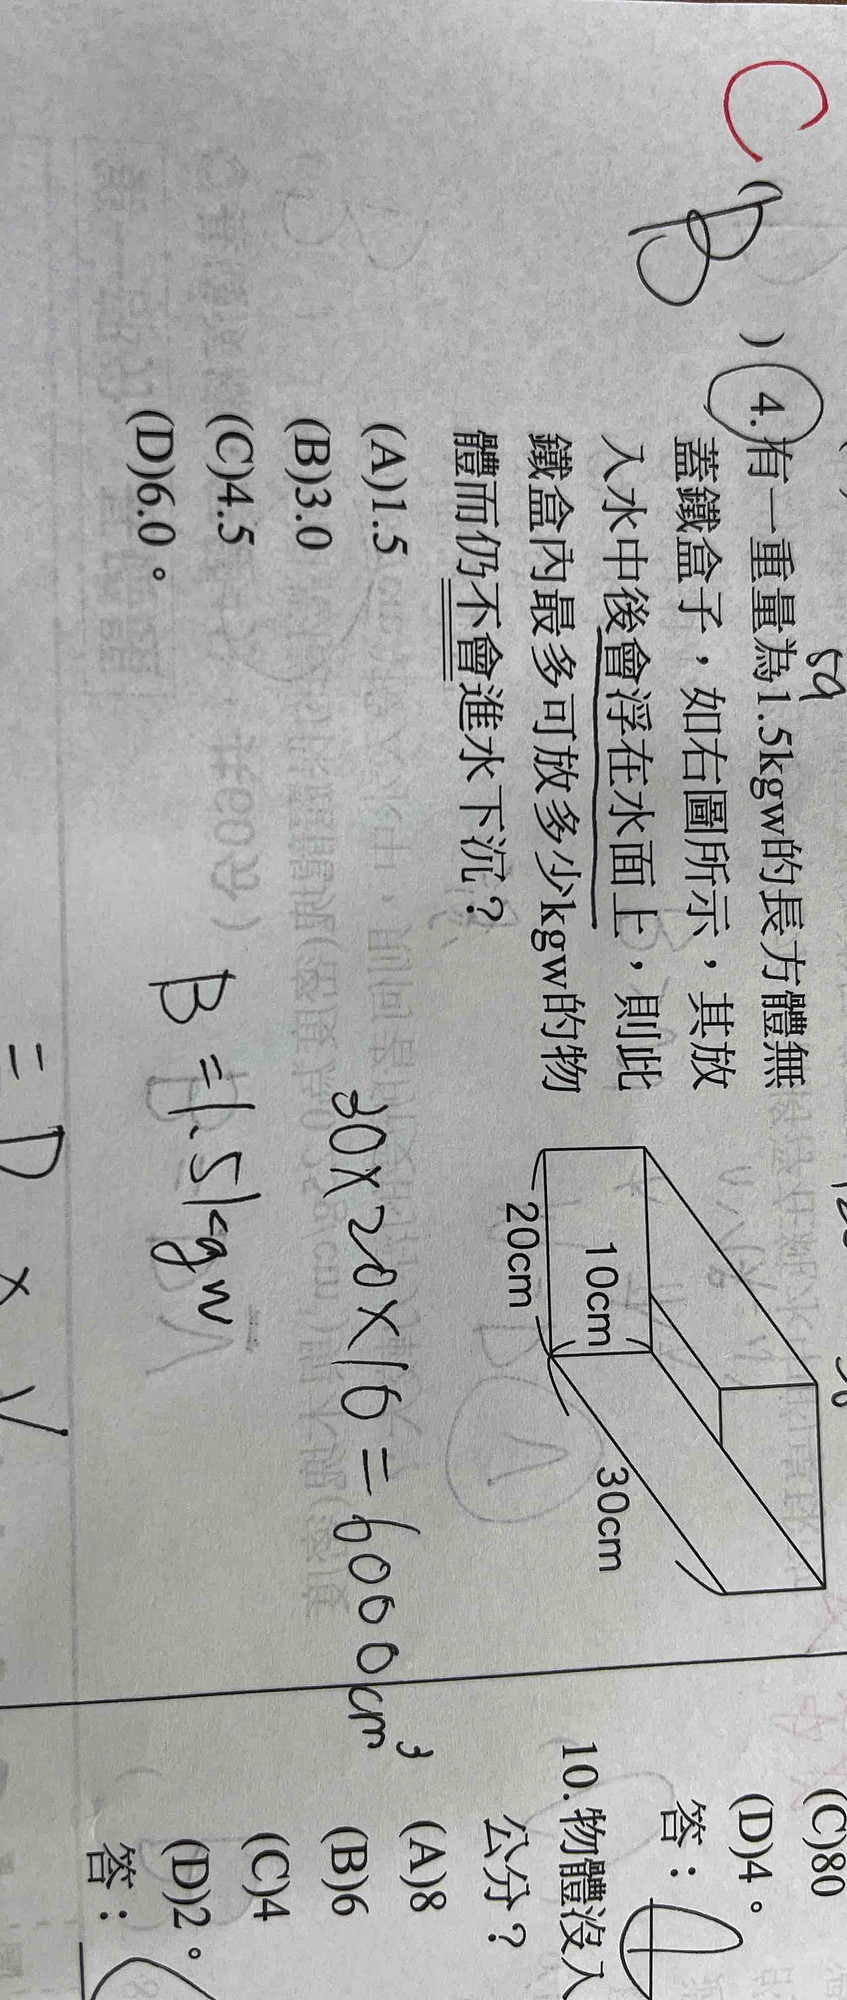 C
( B ) 4. 有一重量為1.5kgw的長方體無
蓋鐵盒子，如右圖所示，其放
入水中後會浮在水面上，則此
鐵盒內最多可放多少kgw的物
體而仍不會進水下沉？
(A)1.5
(B)3.0
(C)4.5
(D)6.0。
10cm
20cm
30cm
30×20×10=6000cm³
B=1.5kgw
=D×V
(C)80
(D)4。
答：
10.物體沒入
公分？
(A)8
(B)6
(C)4
(D)2。
答：